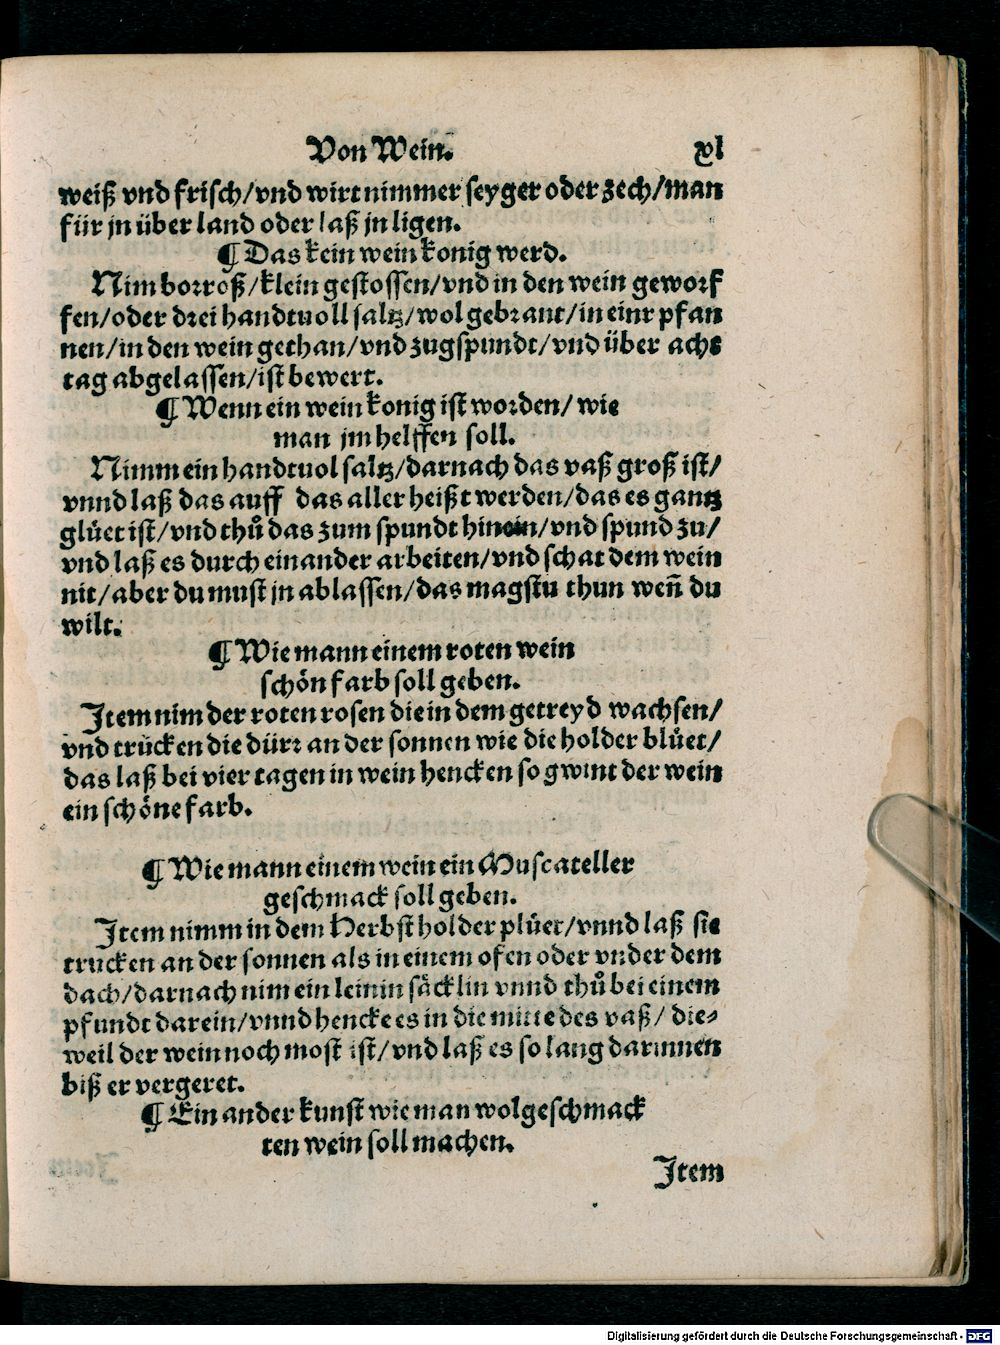 Von Wein. xl
weiß vnd frisch/vnd wirt nimmer seyger oder zech/man
für jn über land oder laß jn ligen.
¶ Das kein wein konig werd.
Nim borroß/klein gestossen/vnd in den wein geworf
fen/oder drei handtuoll saltz/wol gebrant/in einr pfan
nen/in den wein gethan/vnd zugspundt/vnd über acht
tag abgelassen/ist bewert.
¶ Wenn ein wein konig ist worden/ wie
man jm helffen soll.
Nimm ein handtuol saltz/darnach das vaß groß ist/
vnnd laß das auff das aller heißt werden/das es gantz
glüet ist/vnd thů das zum spundt hinein/vnd spund zu/
vnd laß es durch einander arbeiten/vnd schat dem wein
nit/aber du must jn ablassen/das magstu thun weñ du
wilt.
¶ Wie mann einem roten wein
schön farb soll geben.
Item nim der roten rosen die in dem getreyd wachsen/
vnd trücken die dürr an der sonnen wie die holder blüet/
das laß bei vier tagen in wein hencken so gwint der wein
ein schöne farb.
¶ Wie mann einem wein ein Muscateller
geschmack soll geben.
Item nimm in dem Herbst holder plüet/vnnd laß sie
trucken an der sonnen als in einem ofen oder vnder dem
dach/darnach nim ein leinin säcklin vnnd thů bei einem
pfundt darein/vnnd hencke es in die mitte des vaß/ die⸗
weil der wein noch most ist/vnd laß es so lang darinnen
biß er vergeret.
¶ Ein ander kunst wie man wolgeschmack
ten wein soll machen.
Item
Digitalisierung gefördert durch die Deutsche Forschungsgemeinschaft - DFG